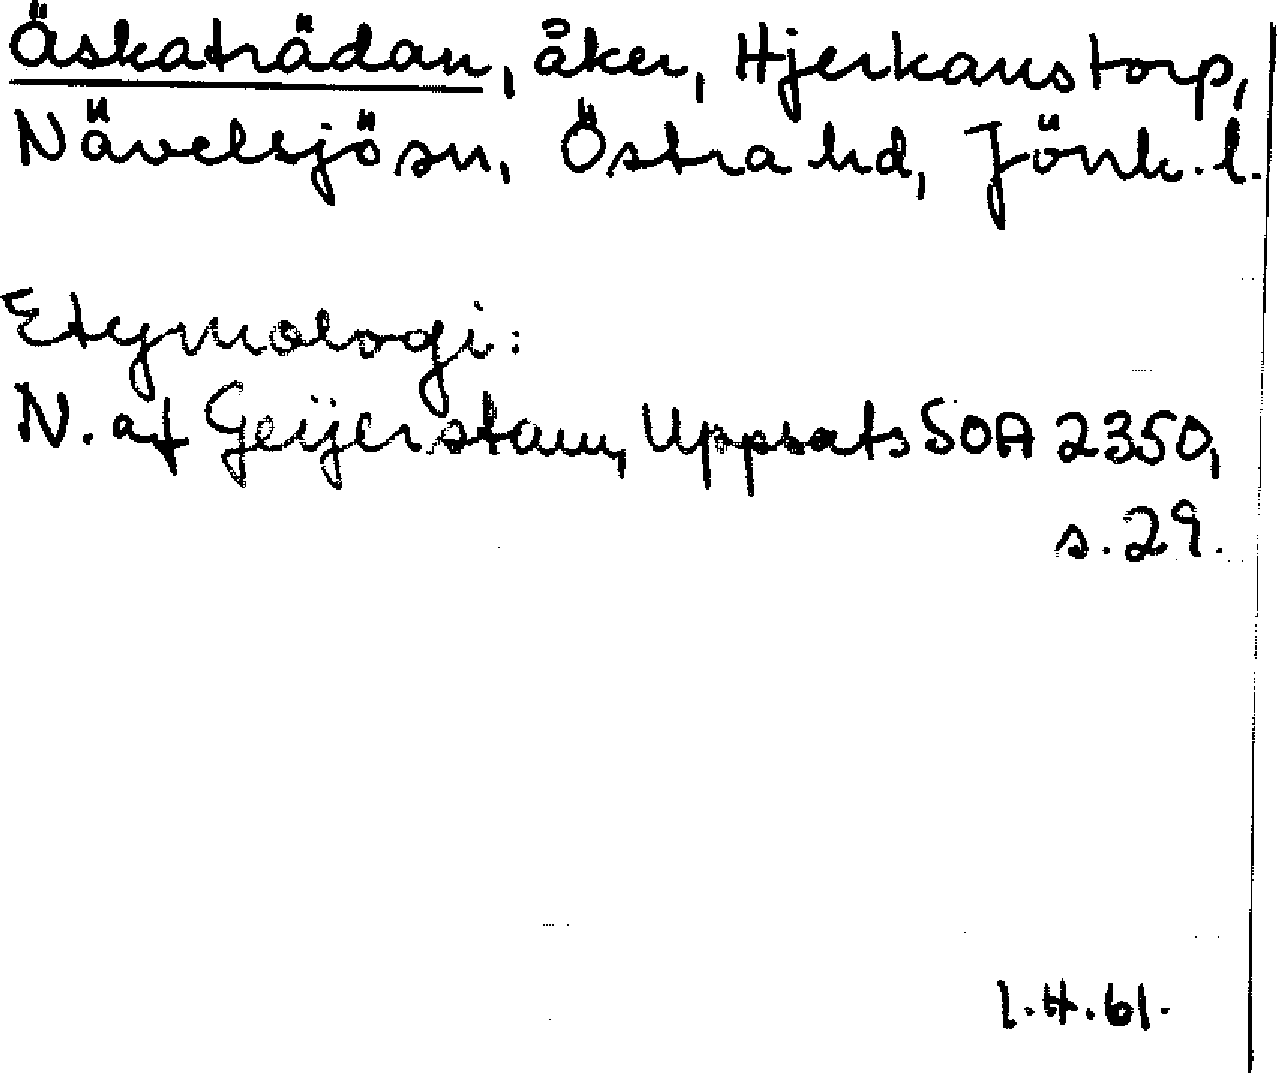 Äskaträdan, åker, Hjerkanstorp,
Nävelsjö sn, Östra hd, Jönk. l.
Etymologi:
N. af Geijerstam, Uppsats SOA 2350,
s. 29.
1.4.61.